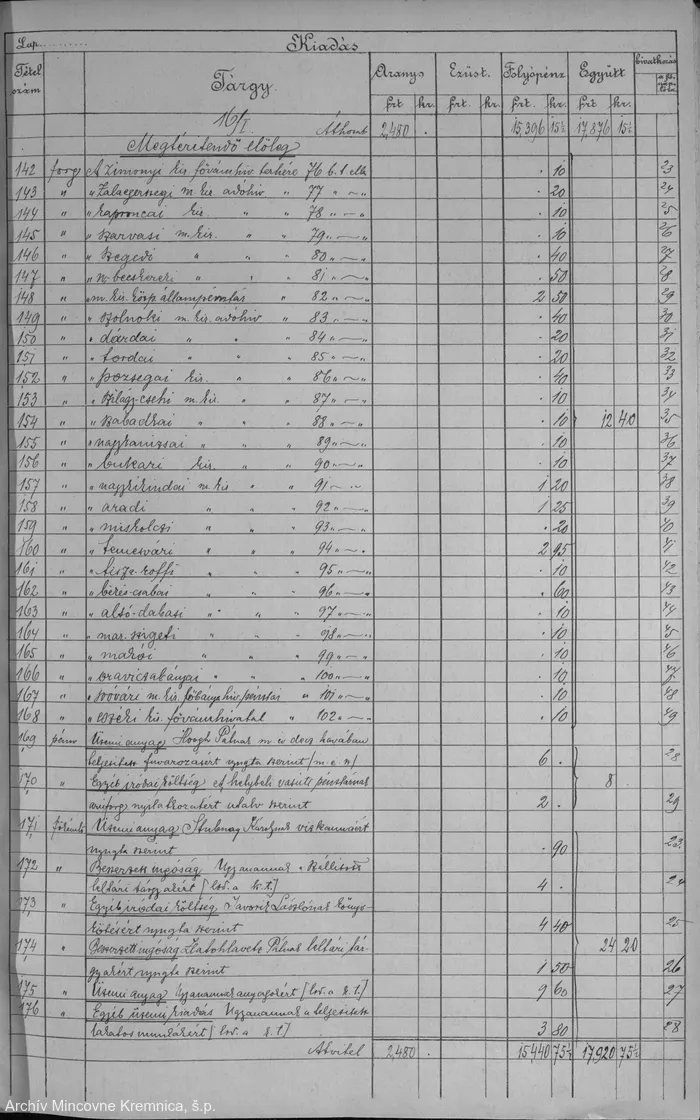 Lap. Kiadás
Tétel szám Tárgy. Arany Ezüst. Folyópénz Együtt hivatkozás
frt kr. frt kr. frt kr. frt kr.
16/I Áthozat 2,480 . 15,396 15½ 17,876 15½
Megtérítendő előleg
142 forg A Zimonyi kir. fővámhiv terhére 76 b. t. ella . 10 23
143 " " Zalaegerszegi m kir adóhiv " 77 " " . 20 24
144 " " kaproncai kir. " " 78 " " . 10 25
145 " " szarvasi m. kir. " " 79 " " . 10 26
146 " " szegedi " " " 80 " " . 40 27
147 " " n. becskereki " " " 81 " " . 50 28
148 " " m. kir. közp. állampénztár " 82 " " 2 50 29
149 " " szolnoki m. kir. adóhiv " 83 " " . 40 30
150 " " dárdai " " " 84 " " . 20 31
151 " " tordai " " " 85 " " . 20 32
152 " " pozsegai kir. " " 86 " " . 40 33
153 " " szilágy-csehi m. kir " " 87 " " . 10 34
154 " " szabadkai " " " 88 " " . 10 12 40 35
155 " " nagykanizsai " " " 89 " " . 10 36
156 " " bukari kir. " " 90 " " . 10 37
157 " " nagykikindai m. kir " " 91 " " 1 20 38
158 " " aradi " " " 92 " " 1 25 39
159 " " miskolczi " " " 93 " " . 20 40
160 " " temesvári " " " 94 " " 2 95 41
161 " " tisza-roffi " " " 95 " " . 10 42
162 " " békés-csabai " " " 96 " " . 60 43
163 " " alsó-dabasi " " " 97 " " . 10 44
164 " " mar. szigeti " " " 98 " " . 10 45
165 " " marói " " " 99 " " . 10 46
166 " " oravicabányai " " " 100 " " . 10 47
167 " " sóvári m. kir. főbányahiv. pénztár " 101 " " . 10 48
168 " " eszéki kir. fővámhivatal " 102 " " . 10 49
169 pénv Üzemi anyag Pálnak m. év dec. havában
teljesített fuvarozásért nyugta szerint (m. é. n) 6 . 28
170 " Egyéb irodai költség A helybeli vasúti pénztárnak 8 .
nyilatkozatért utalv szerint 2 . 29
171 Üzemi anyag Karolynak
nyugta szerint . 90 23
172 " Beszerzett ingóság Ugyanannak szállított
leltári tárgyakért [lsd. a k. t.] 4 . 24
173 " Egyéb irodai költség Javorik Lászlónak könyv-
kötésért nyugta szerint 4 40 25
174 " Beszerzett ingóság Pálnak leltári tár- 24 20
gyakért nyugta szerint 1 50 26
175 " Üzemi anyag Ugyanannak anyagokért [lsd. a k. t.] 9 60 27
176 " Egyéb üzemi kiadás Ugyanannak teljesített
lakatos munkákért [lsd. a k. t.] 3 80 28
Átvitel 2,480 . 15,440 75½ 17,920 75½
Archív Mincovne Kremnica, š.p.